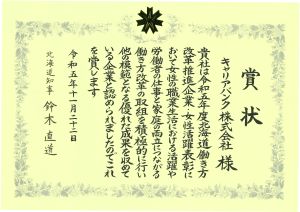 賞状
キャリアバンク株式会社 様
貴社は令和五年度北海道働き方
改革推進企業 女性活躍表彰に
おいて女性の職業生活における活躍や
労働者の仕事と家庭の両立につながる
働き方改革の取組を積極的に行い
他の模範となる優れた成果を収めて
いる企業と認められましたのでこれ
を賞します
令和五年十一月二十二日
北海道知事 鈴木直道